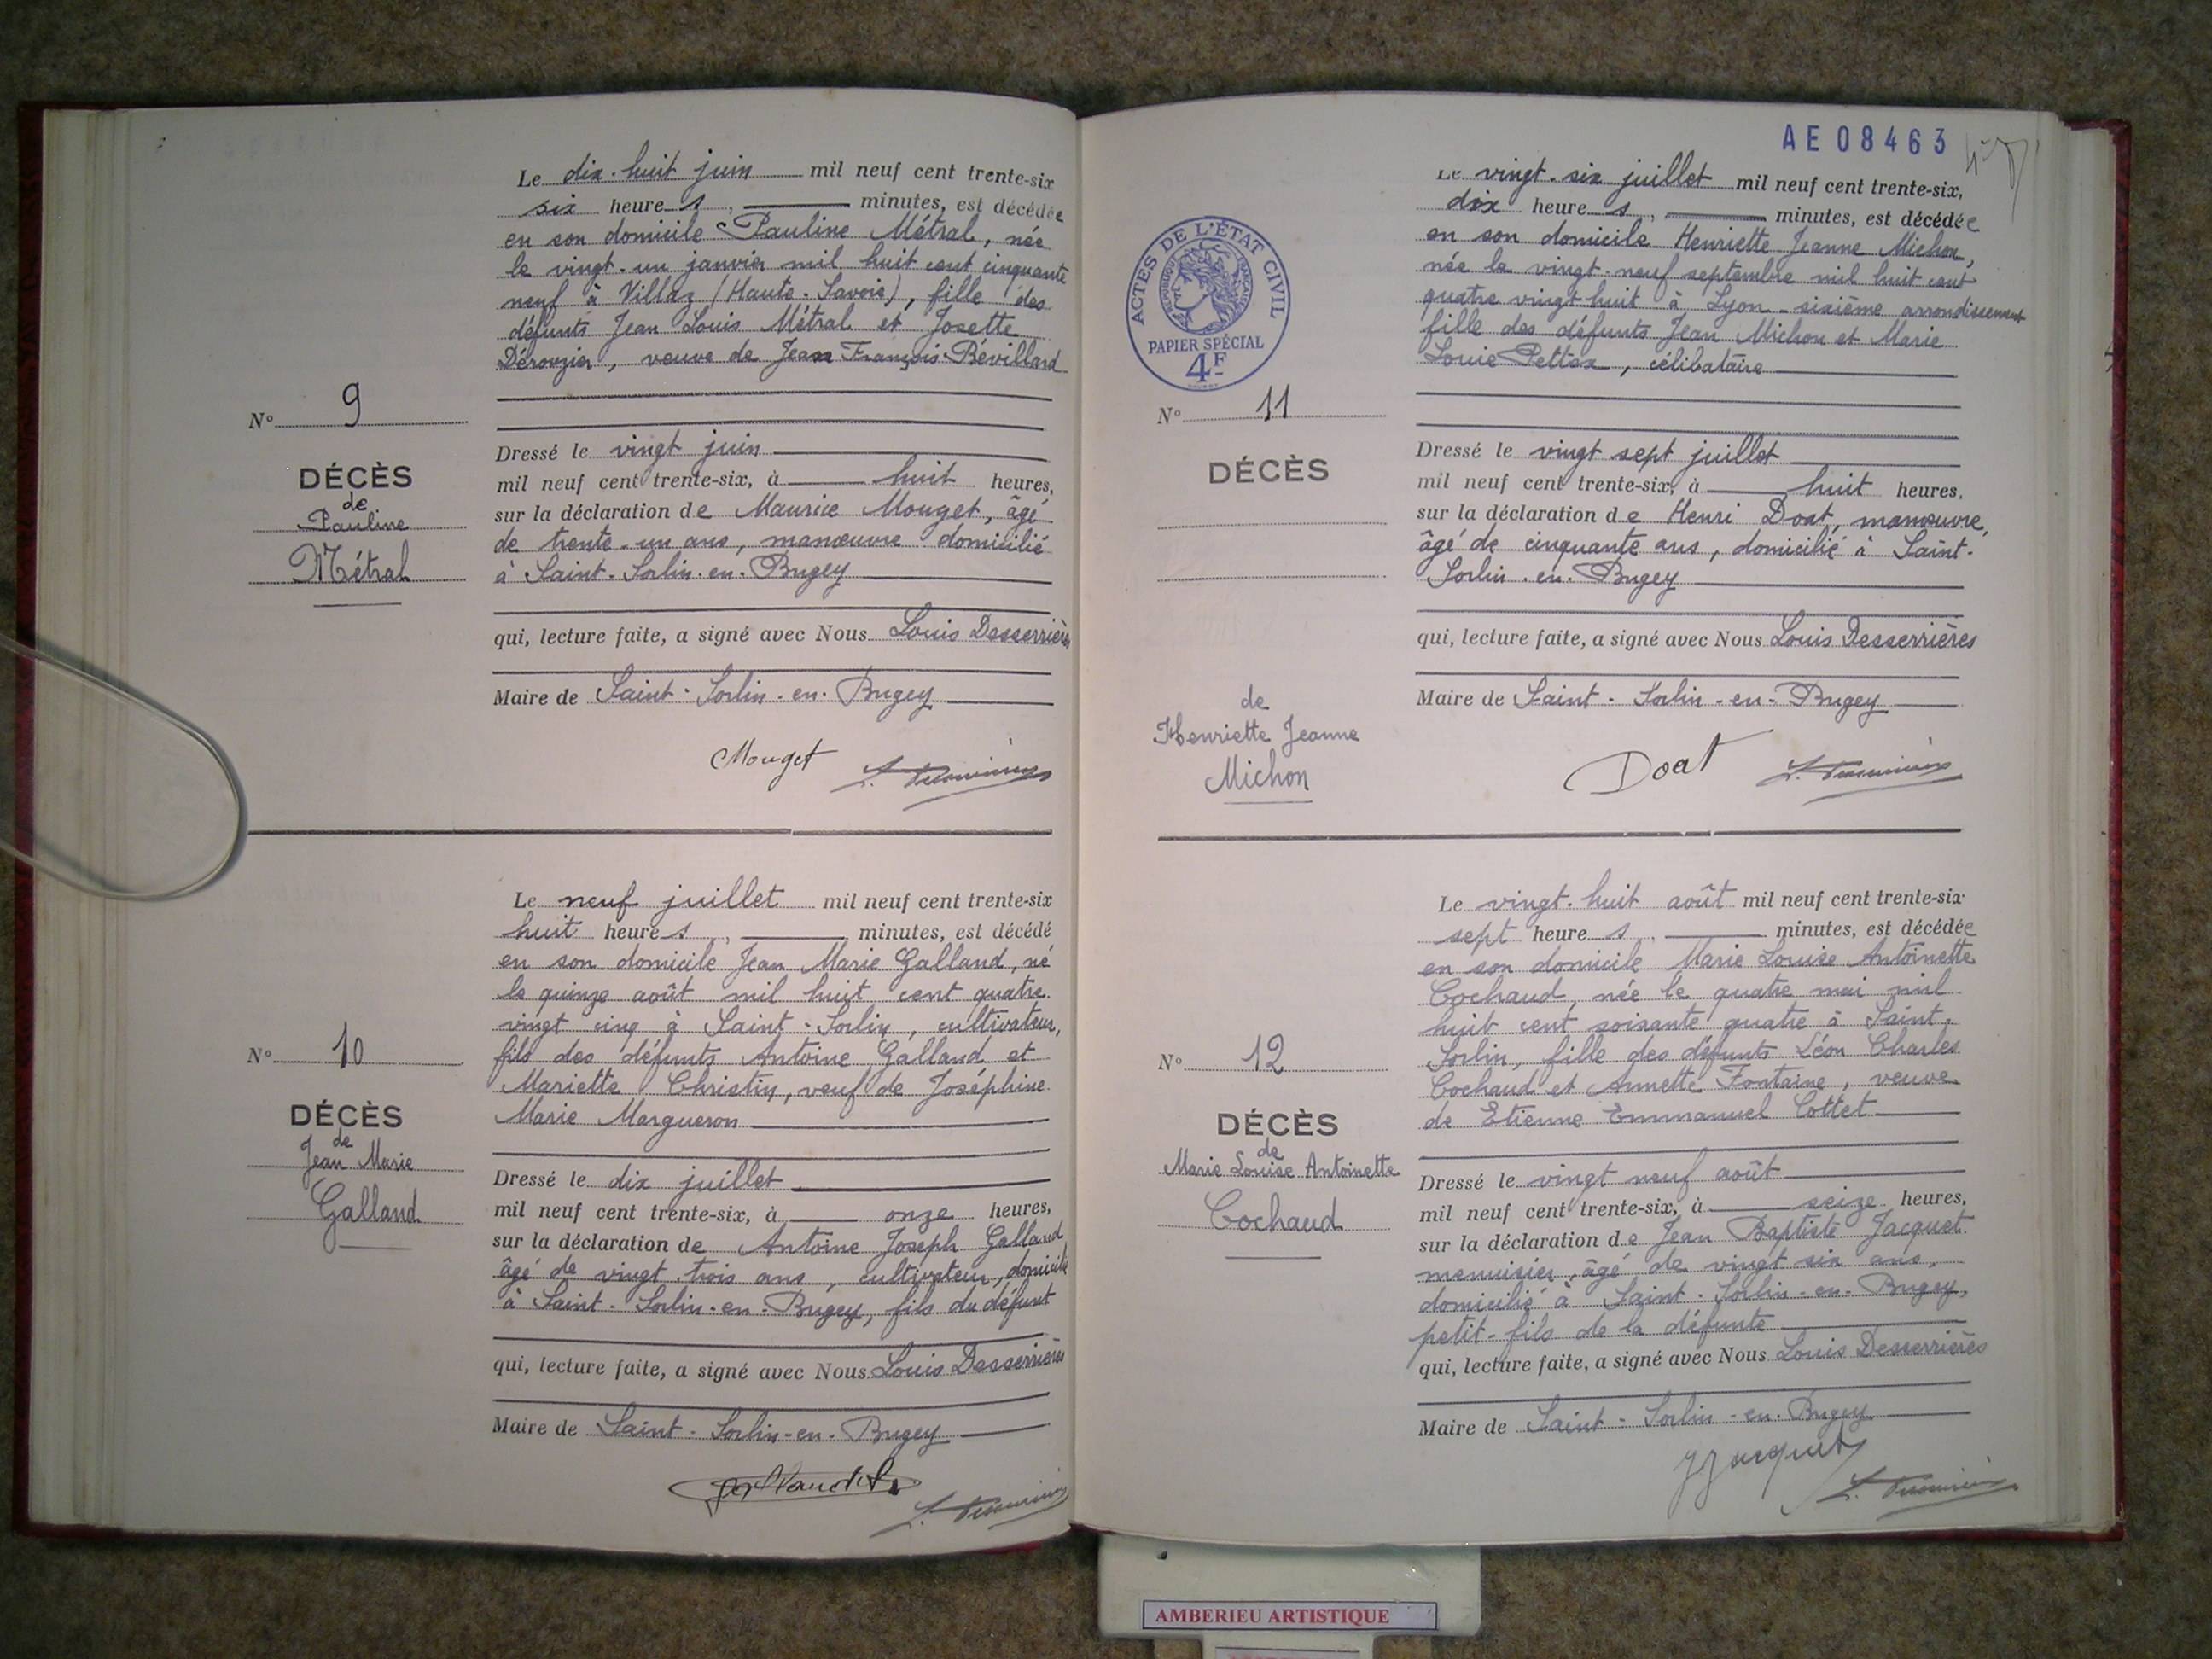 Le dix-huit juin mil neuf cent trente-six
six heures, minutes, est décédée
en son domicile Pauline Métral, née
le vingt-un janvier mil huit cent cinquante
neuf à Villaz (Haute-Savoie), fille des
défunts Jean Louis Métral et Josette
Dérouzier, veuve de Jean François Révillard
N° 9
DÉCÈS
de
Pauline
Métral
Dressé le vingt juin
mil neuf cent trente-six, à huit heures,
sur la déclaration de Maurice Mouget, âgé
de trente-un ans, manœuvre domicilié
à Saint-Sorlin-en-Bugey
qui, lecture faite, a signé avec Nous Louis Desserrières
Maire de Saint-Sorlin-en-Bugey
Mouget
Le neuf juillet mil neuf cent trente-six
huit heures, minutes, est décédé
en son domicile Jean Marie Galland, né
le quinze août mil huit cent quatre
vingt cinq à Saint-Sorlin, cultivateur,
fils des défunts Antoine Galland et
Mariette Christin, veuf de Joséphine
Marie Margueron
N° 10
DÉCÈS
de
Jean Marie
Galland
Dressé le dix juillet
mil neuf cent trente-six, à onze heures,
sur la déclaration de Antoine Joseph Galland
âgé de vingt-trois ans, cultivateur, domicilié
à Saint-Sorlin-en-Bugey, fils du défunt
qui, lecture faite, a signé avec Nous Louis Desserrières
Maire de Saint-Sorlin-en-Bugey
AE 08463
Le vingt-six juillet mil neuf cent trente-six,
dix heures, minutes, est décédée
en son domicile Henriette Jeanne Michon,
née le vingt-neuf septembre mil huit cent
quatre vingt huit à Lyon-sixième arrondissement
fille des défunts Jean Michon et Marie
Louie Pettex, célibataire
ACTES DE L'ÉTAT CIVIL
PAPIER SPÉCIAL
4F
N° 11
DÉCÈS
de
Henriette Jeanne
Michon
Dressé le vingt sept juillet
mil neuf cent trente-six, à huit heures.
sur la déclaration de Henri Doat, manœuvre,
âgé de cinquante ans, domicilié à Saint-
Sorlin-en-Bugey
qui, lecture faite, a signé avec Nous Louis Desserrières
Maire de Saint-Sorlin-en-Bugey
Doat
Le vingt-huit août mil neuf cent trente-six
sept heures, minutes, est décédée
en son domicile Marie Louise Antoinette
Cochaud, née le quatre mai mil
huit cent soixante quatre à Saint-
Sorlin, fille des défunts Léon Charles
Cochaud et Annette Fontaine, veuve
de Etienne Emmanuel Cottet
N° 12
DÉCÈS
de
Marie Louise Antoinette
Cochaud
Dressé le vingt neuf août
mil neuf cent trente-six, à seize heures,
sur la déclaration de Jean Baptiste Jacquet
menuisier, âgé de vingt six ans,
domicilié à Saint-Sorlin-en-Bugey,
petit-fils de la défunte
qui, lecture faite, a signé avec Nous Louis Desserrières
Maire de Saint-Sorlin-en-Bugey
JJacquet
AMBERIEU ARTISTIQUE